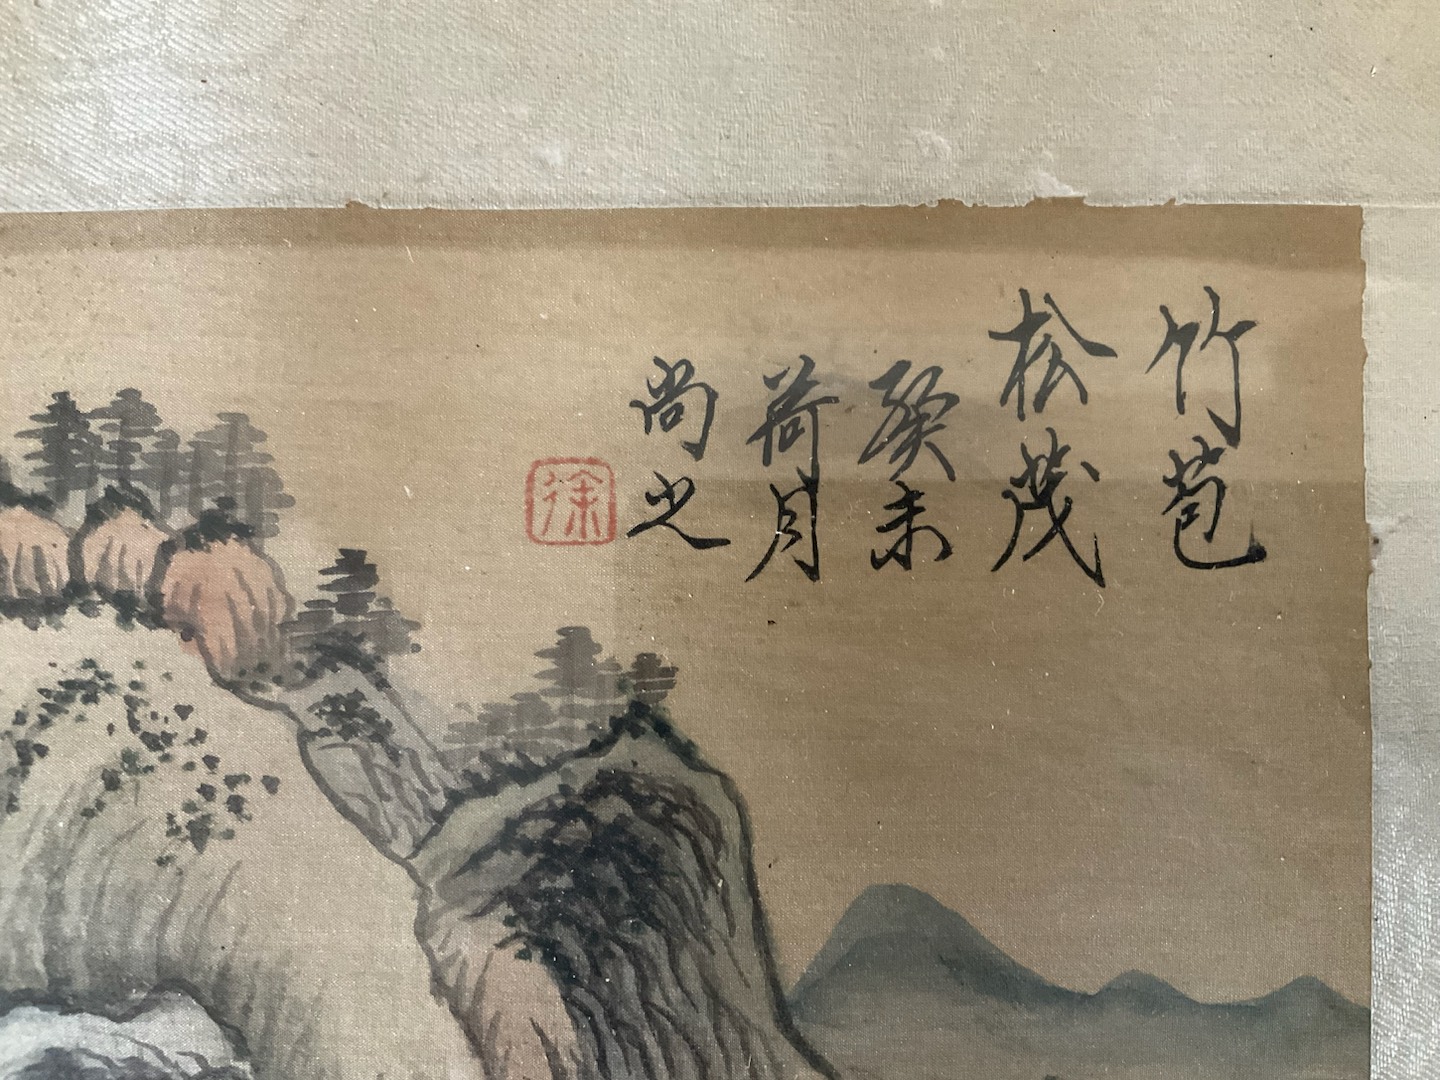 竹苞
松茂
癸未
荷月
尚之
徐